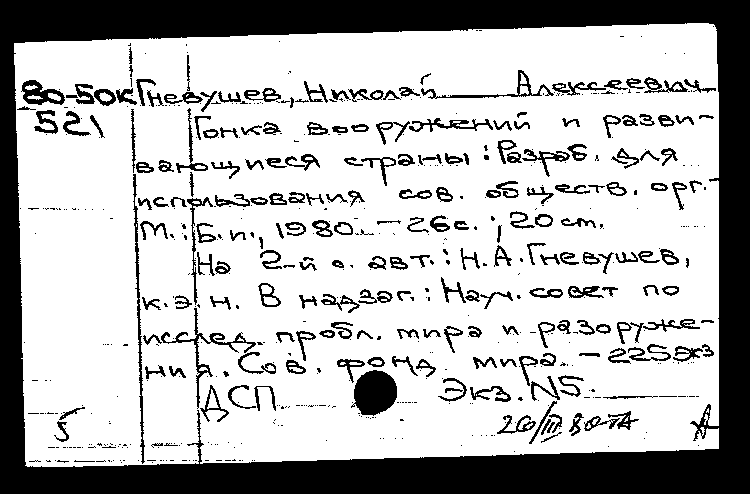 80-50к Гневушев, Николай Алексеевич
521 Гонка вооружений и разви-
вающиеся страны : Разраб. для
использования сов. обществ. орг.-
М. : Б.и., 1980. - 26с. ; 20 cm.
На 2-й с. авт. : Н.А. Гневушев,
к.э.н. В надзаг. : Науч. совет по
исслед. пробл. мира и разоруже-
ния. Сов. фонд мира. - 225экз
ДСП Экз. N5.
5 20/III 80